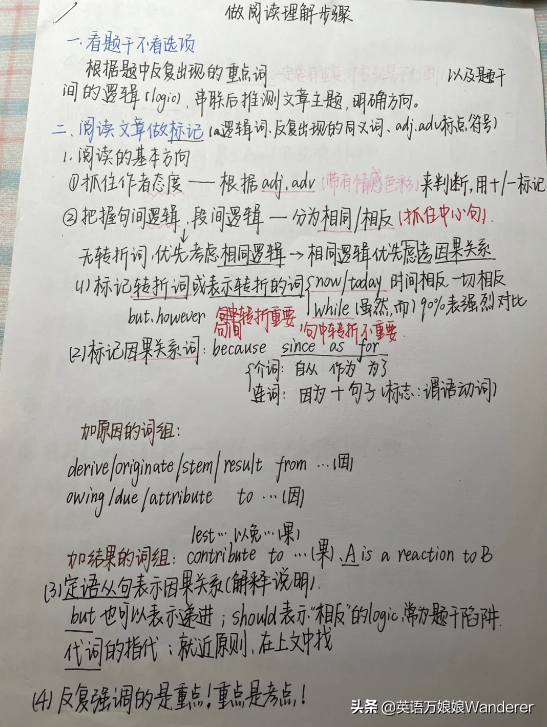 做阅读理解步骤
一.看题干不看选项
根据题中反复出现的重点词 以及题干
间的逻辑(logic),串联后推测文章主题,明确方向。
二.阅读文章做标记(a逻辑词.反复出现的同义词、adj.adv标点符号)
1.阅读的基本方向
①抓住作者态度——根据adj.adv(带有情感色彩)来判断,用+/-标记
②把握句间逻辑、段间逻辑—分为相同/相反(抓住中心句).
无转折词,优先考虑相同逻辑→相同逻辑优先虑考因果关系
(1)标记转折词或表示转折的词 now/today 时间相反一切相反
but.however 句间转折重要 句中转折不重要 while(虽然,而)90%表强烈对比
(2)标记因果关系词:because since as for
介词:自从 作为 为了
连词:因为+句子(标志:谓语动词)
加原因的词组:
derive/originate/stem/result from …(因)
owing/due/attribute to …(因)
lest…以免…(果)
加结果的词组:contribute to …(果).A is a reaction to B
(3)定语从句表示因果关系(解释说明).
but也可以表示递进;should表示“相反”的logic,常为题干陷阱.
代词的指代;就近原则,在上文中找
(4)反复强调的是重点!重点是考点!
头条@英语万娘娘Wanderer